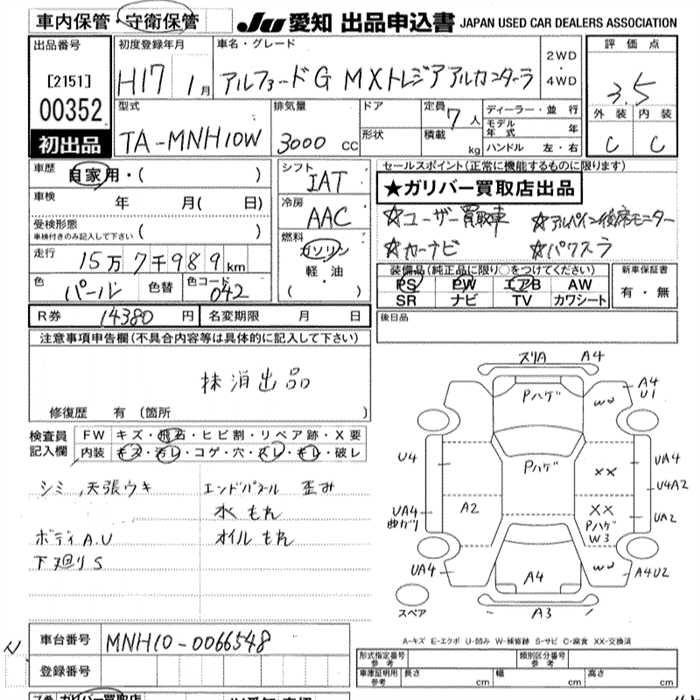 車内保管・守衛保管
JU 愛知 出品申込書 JAPAN USED CAR DEALERS ASSOCIATION
出品番号
[2151]
00352
初出品
初度登録年月
H17 1月
車名・グレード
アルファードG MXトレジアアルカンターラ
2WD
4WD
評価点
3.5
外装 内装
C C
型式
TA-MNH10W
排気量
3000 CC
ドア
形状
定員
7人
積載
kg
ディーラー・並行
モデル年式 年
ハンドル 左・右
車歴
自家用・( )
車検
年 月( 日)
受検形態
車検付きのみ記入して下さい ( )
走行
15万7千989km
色
パール
色替
色コード
042
シフト
IAT
冷房
AAC
燃料
ガソリン
軽油
( )
セールスポイント(正常に機能するものに限ります)
★ガリバー買取店出品
☆ユーザー買取車 ☆アルパイン後席モニター
☆カーナビ ☆パワスラ
装備品(純正品に限り○をつけてください)
PS PW エアB AW
SR ナビ TV カワシート
新車保証書
有・無
R券 14380円
名変期限 月 日
後日品
注意事項申告欄(不具合内容等は具体的に記入して下さい)
抹消出品
修復歴 有(箇所
検査員記入欄
FW キズ・飛石・ヒビ割・リペア跡・X要
内装 キズ・汚レ・コゲ・穴・スレ・キレ・破レ
シミ,天張ウキ エンドパネル 歪み
水もれ
ボディA.U オイルもれ
下廻りS
スリA A4
Pハゲ
W U
A4
U1
U4
Pハゲ
××
UA4
U4A2
UA4
曲ガリ
A2
××
Pハゲ
W3
UA2
UA4
A4
W U
A4U2
A3
スペア
A-キズ E-エクボ U-凹み W-補修跡 S-サビ C-腐食 XX-交換済
車台番号
MNH10-0066548
登録番号
形式指定番号
参考
類別区分番号
参考
車庫証明用
参考
長さ cm 幅 cm 高さ cm